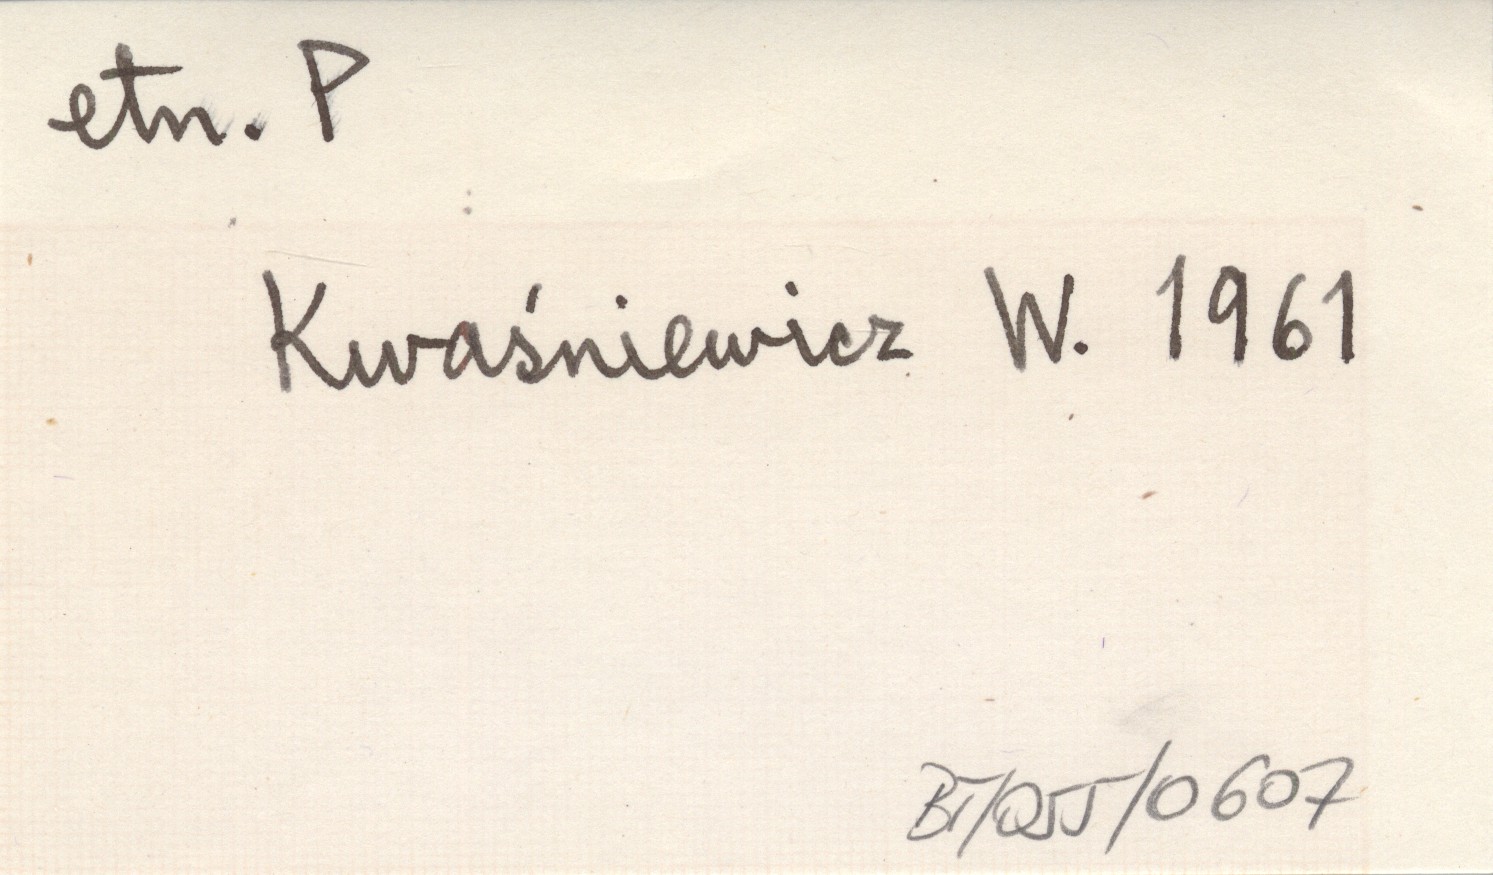 etn. P
Kwaśniewicz W. 1961
BI/QJJ/0607